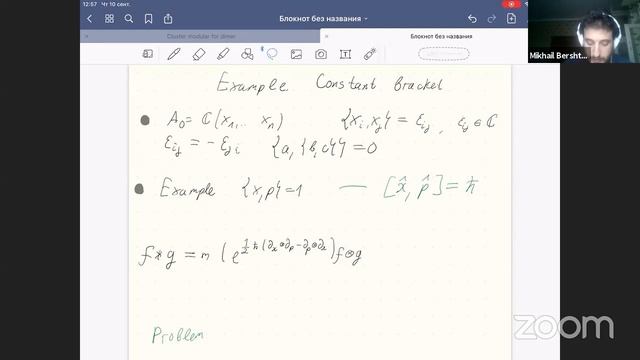 12:57 Чт 10 сент.
Блокнот без названия
Cluster modular for dimer
Блокнот без названия
Mikhail Bersht...
Example. Constant Bracket
A₀ = ℂ(x₁,... xₙ) {xᵢ, xⱼ} = εᵢⱼ, εᵢⱼ ∈ ℂ
εᵢⱼ = -εⱼᵢ {a, {b, c}} = 0
Example {x, p} = 1 — [x̂, p̂] = ħ
f * g = m (e^{½ ħ (∂ₓ⊗∂ₚ - ∂ₚ⊗∂ₓ)}) f⊗g
Problem
zoom